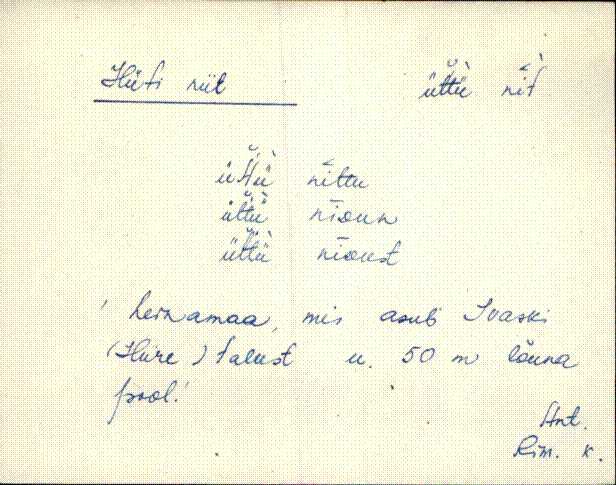 Hüti niit üt̆tǜ nìt
üt̆tǜ nìttu
üt̆tǜ nīᴅun
üt̆tǜ nīᴅust
' heinamaa, mis asub Ivaski
(Hüre) talust u. 50 m lõuna
pool.'
Ant.
Rim. k.